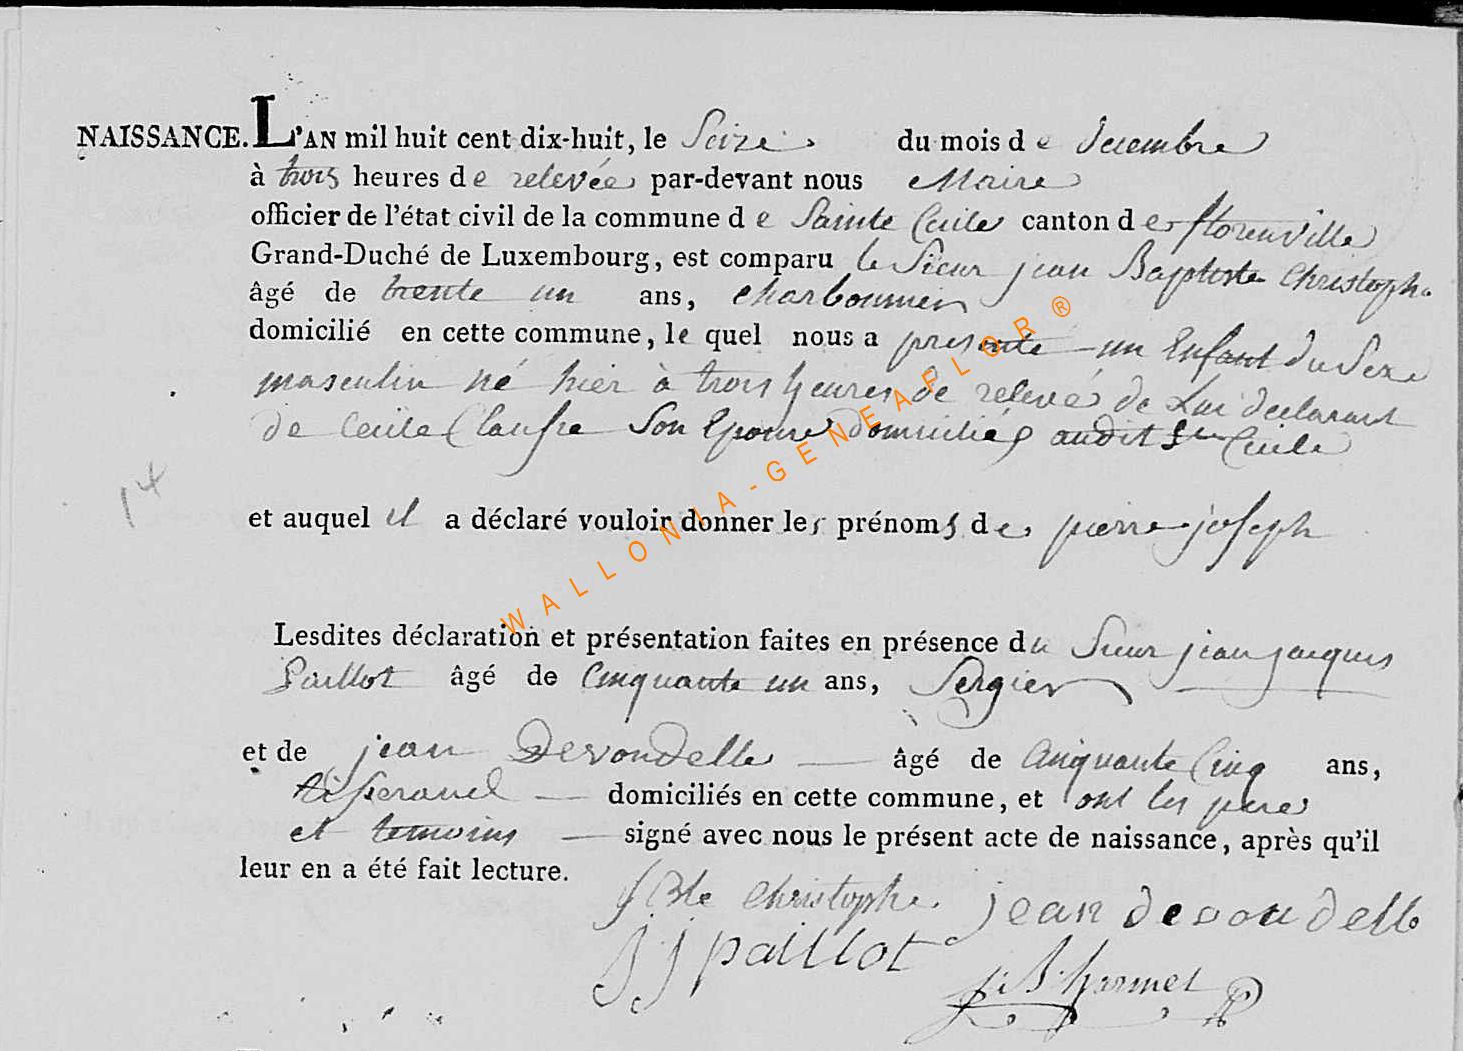 NAISSANCE. L'AN mil huit cent dix-huit, le Seize du mois de decembre
à trois heures de relevée par-devant nous Maire
officier de l'état civil de la commune de Sainte Cecile canton de florenville
Grand-Duché de Luxembourg, est comparu le Sieur jean Baptiste Christophe
âgé de trente un ans, charbonnier
domicilié en cette commune, le quel nous a presenté un Enfant du Sexe
masculin né hier à trois heures de relevé de Lui declarant
de Cecile Son Epouse domiciliés audit Ste Cecile
14
et auquel il a déclaré vouloir donner les prénoms de pierre joseph
Lesdites déclaration et présentation faites en présence du Sieur jean jacques
Paillot âgé de Cinquante un ans, Sergier
et de jean Devondelle âgé de Cinquante Cinq ans,
tisserand domiciliés en cette commune, et ont les pere
et temoins signé avec nous le présent acte de naissance, après qu'il
leur en a été fait lecture.
JBte Christophe jean devoudelle
JJ paillot
WALLONIA-GENEAFLOR®